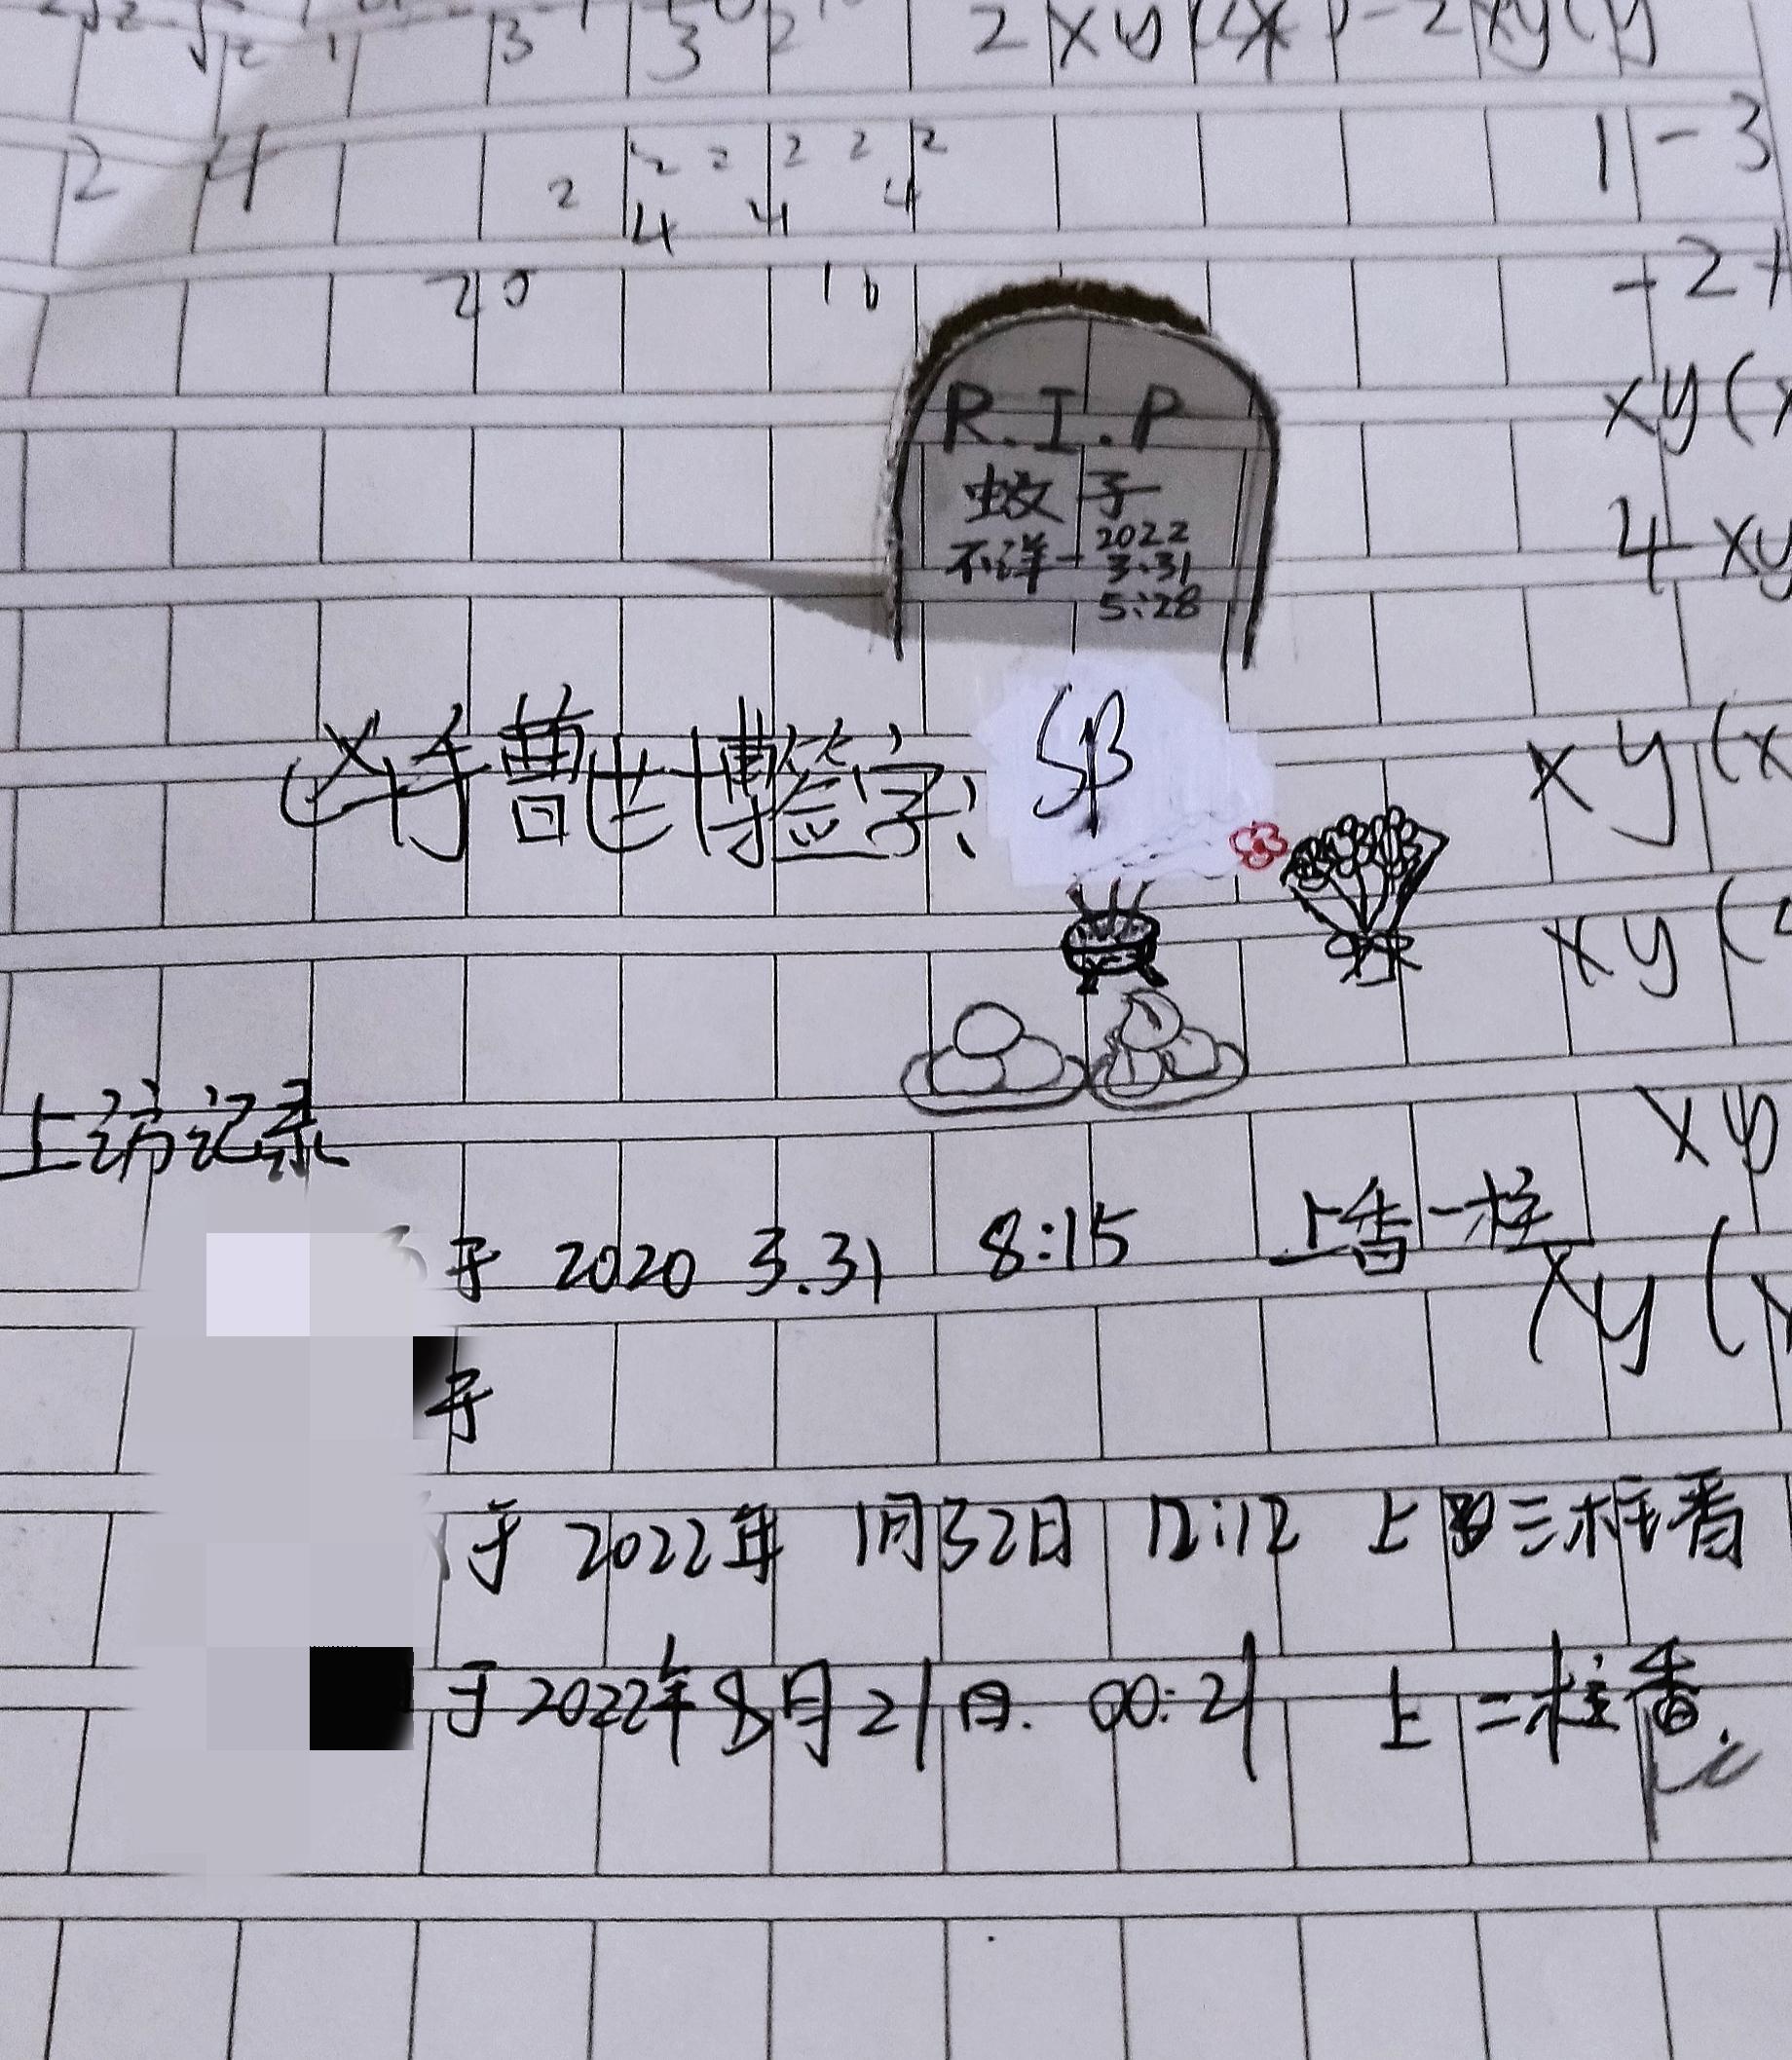 2 xy(4x)-2xy(y
2 4
2 2 2 2 2 2
4 4 4
1-3
20 16
-2+
R.I.P
xy(x
蚊子
不详-2022
3.31
5:28
4xy
凶手曹世博签字:SB
xy(x
xy(
上访记录
xy
于 2020 3.31 8:15 上香一柱
xy(
于
于 2022年 1月32日 12:12 上三柱香
于2022年8月21日. 00:21 上二柱香.